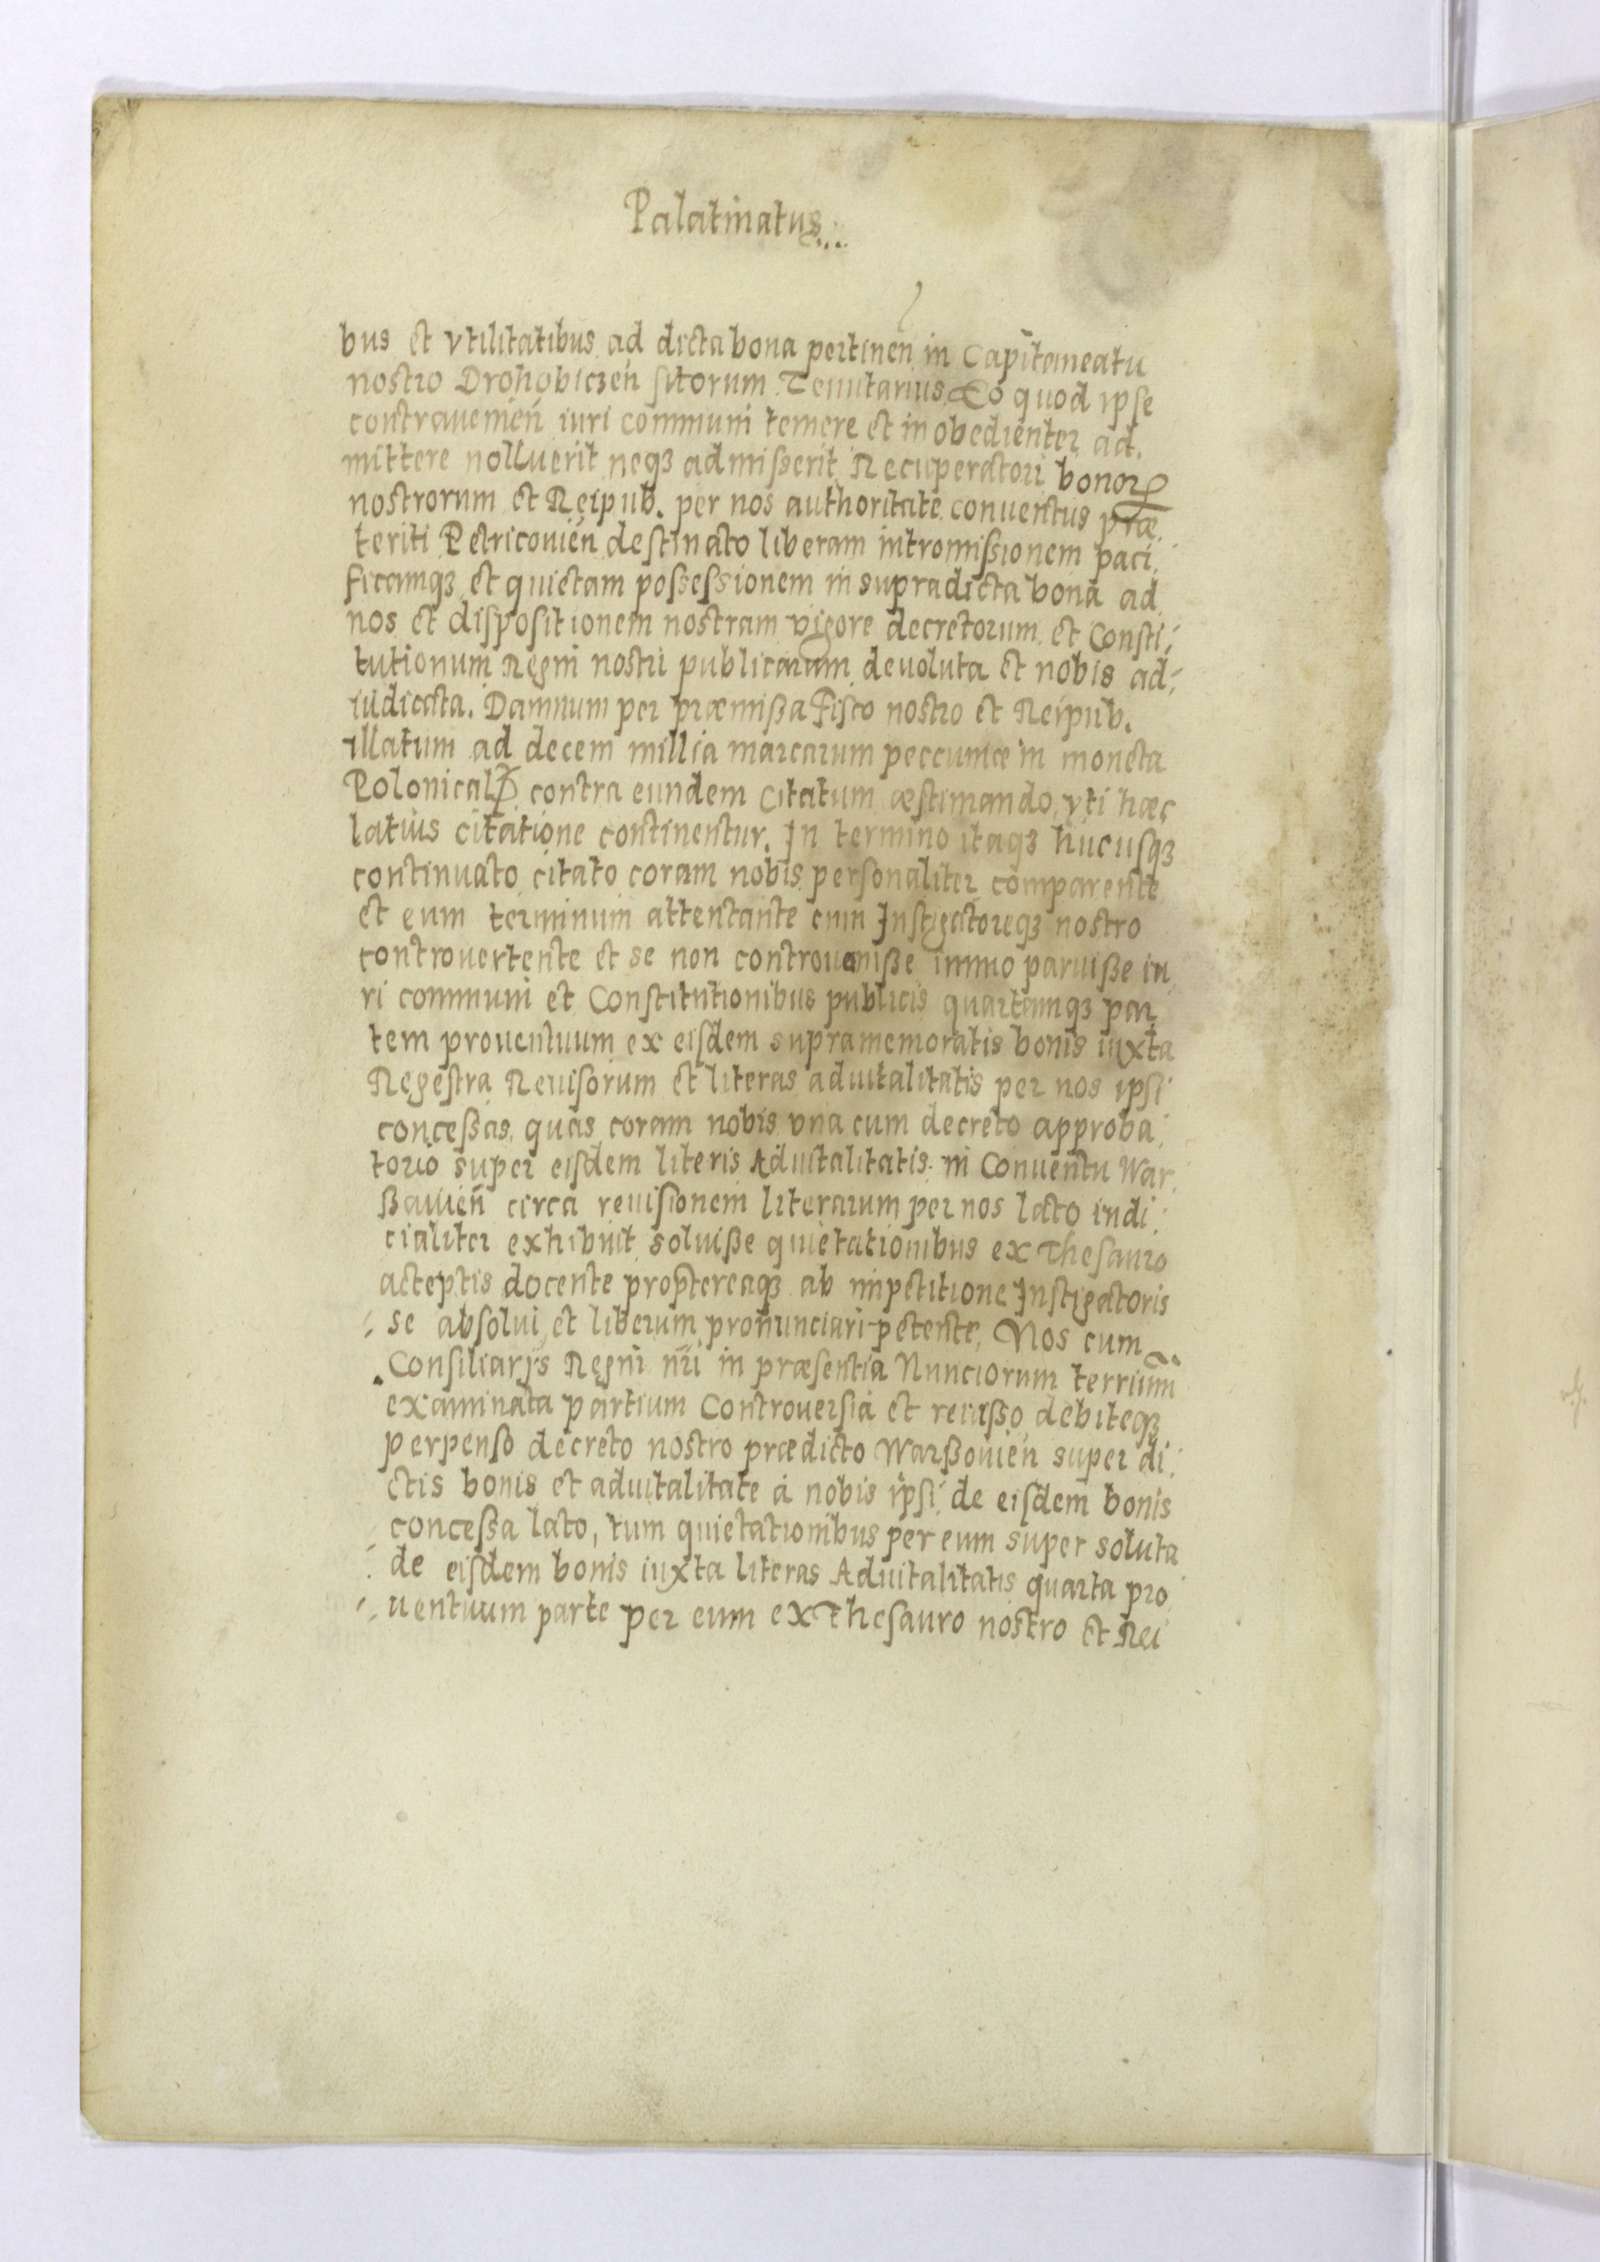 Palatinatus...
bus et vtilitatibus ad dicta bona pertineń in Capitaneatu
nostro Drohobiczeń sitorum Tenutarius, Eo quod ipse
contraveniéń iuri communi temere et inobedienter ad,
mittere nolluerit neqз admisserit Recuperatori bonorꝝ
nostrorum et Reipub. per nos authoritate conventus præ,
teriti Petricovień destinato liberam intromissionem paci,
ficamqз et quietam possessionem in supradicta bona ad
nos et dispositionem nostram vigore decretorum et Consti,
tutionum Regni nostri publicarum devoluta et nobis ad,
iudicata. Damnum per præmißa Fisco nostro et Reipub.
illatum ad decem millia marcarum peccuniæ in moneta
Polonical contra eundem Citatum æstimando, vti hæc
latius citatione continentur. In termino itaqз hucusqз
continuato citato coram nobis personaliter comparente
et eum terminum attentante cum Instigatoreqз nostro
controvertente et se non controveniße immo paruiße iu
ri communi et Constitutionibus publicis quartamqз par
tem proventuum ex eisdem supramemoratis bonis iuxta
Regestra Revisorum et literas advitalitatis per nos ipsi
conceßas, quas coram nobis vna cum decreto approba,
torio super eisdem literis Advitalitatis in Conventu War,
ßavień circa revisionem literarum per nos lato iudi,
cialiter exhibuit solviße quietationibus ex Thesauro
acceptis docente proptereaqз ab impetitione Instigatoris
se absolvi et liberum pronunciari petente, Nos cum
Consiliarijs Regni nr̄i in præsentia Nunciorum terriūm
examinata partium Controversia et revißo debiteqз
perpenso decreto nostro prædicto Warßovień super di,
ctis bonis et advitalitate à nobis ipsi de eisdem bonis
conceßa lato, tum quietationibus per eum super soluta
de eisdem bonis iuxta literas Advitalitatis quarta pro,
ventuum parte per eum ex Thesauro nostro et Rei